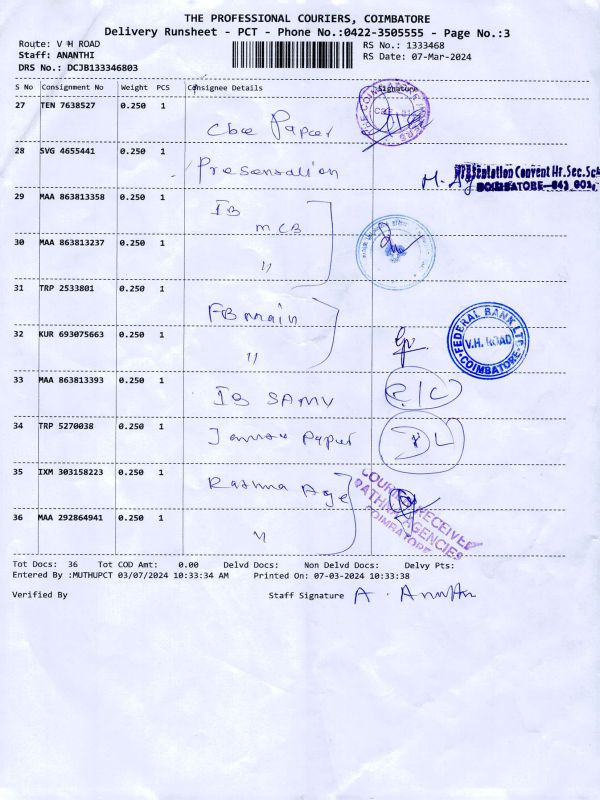 THE PROFESSIONAL COURIERS, COIMBATORE
Delivery Runsheet - PCT - Phone No.:0422-3505555 - Page No.:3
Route: V H ROAD
Staff: ANANTHI
DRS No.: DCJB133346803
RS No.: 1333468
RS Date: 07-Mar-2024
S No Consignment No Weight PCS Consignee Details Signature
27 TEN 7638527 0.250 1
Cbe Paper
28 SVG 4655441 0.250 1
Presentation
Presentation Convent Hr.Sec.Sch
COIMBATORE-641 001
29 MAA 863813358 0.250 1
IB
MCB
30 MAA 863813237 0.250 1
"
31 TRP 2533801 0.250 1
FB main
32 KUR 693075663 0.250 1
"
FEDERAL BANK LTD.
V.H. ROAD
COIMBATORE
33 MAA 863813393 0.250 1
IB SAMV
34 TRP 5270038 0.250 1
Paper
35 IXM 303158223 0.250 1
Rathna Age
COURIER RECEIVED
RATHNA AGENCIES
COIMBATORE
36 MAA 292864941 0.250 1
"
Tot Docs: 36 Tot COD Amt: 0.00 Delvd Docs: Non Delvd Docs: Delvy Pts:
Entered By :MUTHUPCT 03/07/2024 10:33:34 AM Printed On: 07-03-2024 10:33:38
Verified By Staff Signature